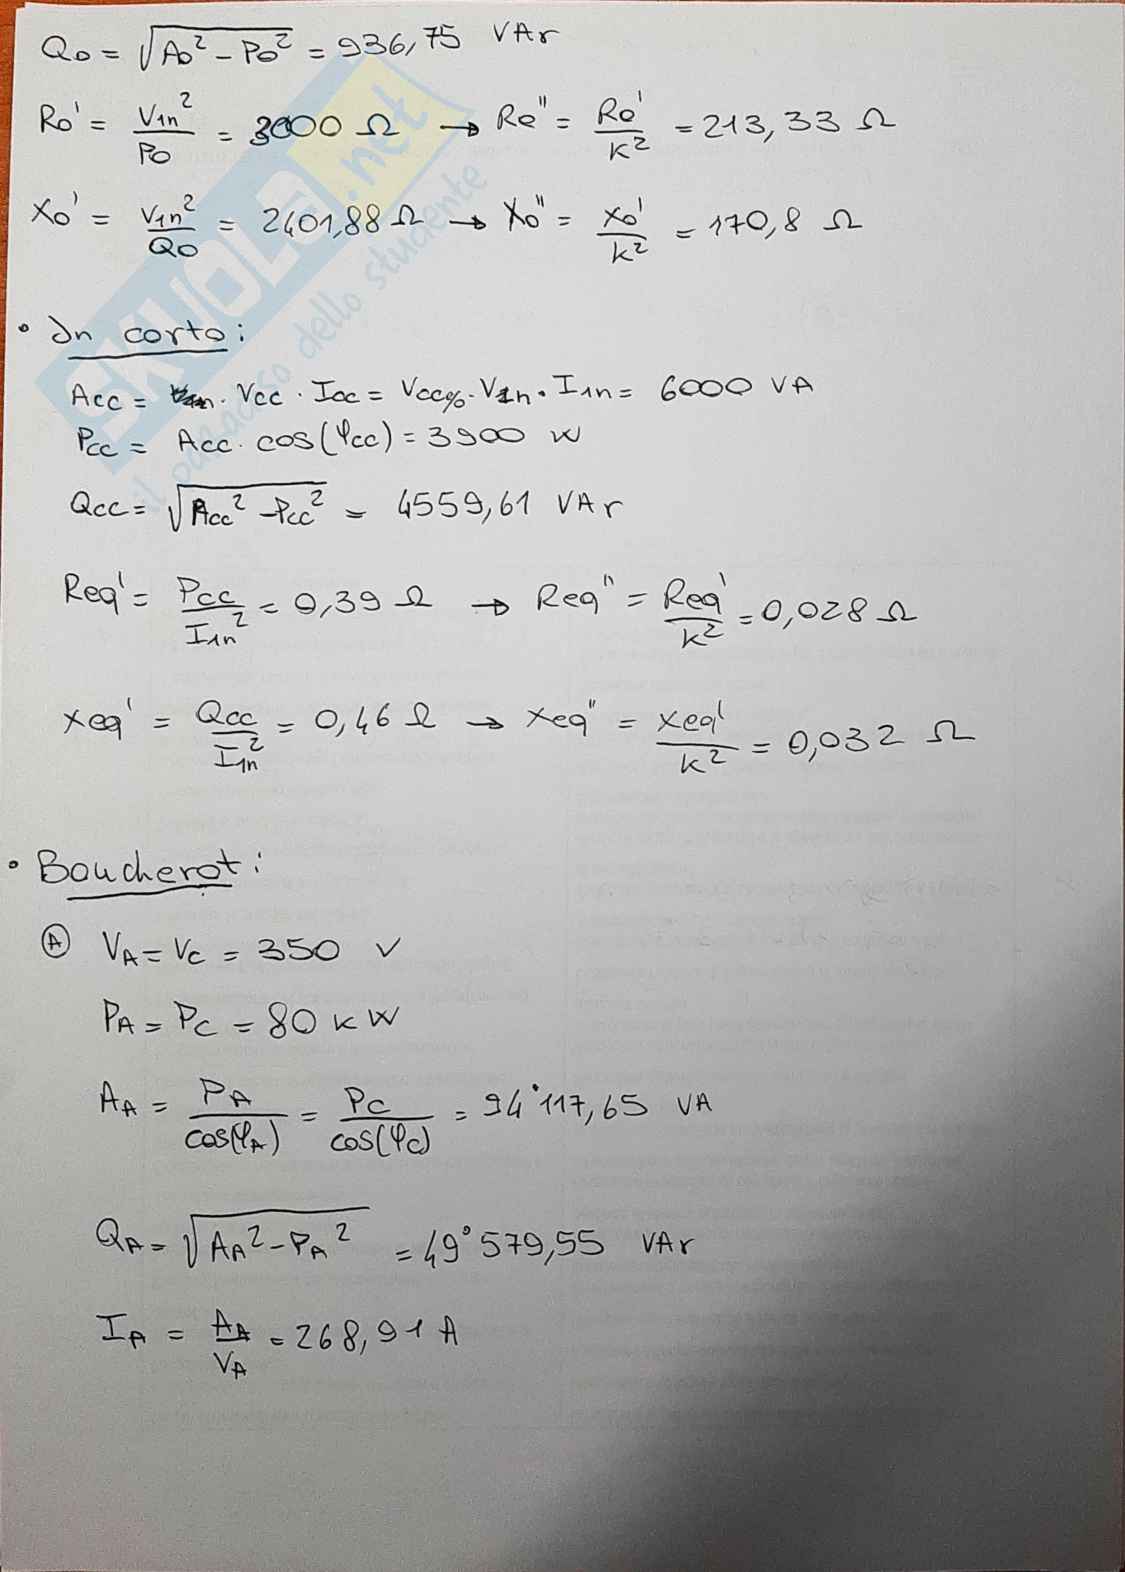 Q0 = √(A0² - P0²) = 936,75 VAr
R0' = V1n²/P0 = 3000 Ω → Re'' = Re'/k² = 213,33 Ω
X0' = V1n²/Q0 = 2401,88 Ω → X0'' = X0'/k² = 170,8 Ω
• In corto:
Acc = · Vcc · Icc = Vcc% · V1n · I1n = 6000 VA
Pcc = Acc · cos(φcc) = 3900 W
Qcc = √(Acc² - Pcc²) = 4559,61 VAr
Req' = Pcc/I1n² = 0,39 Ω → Req'' = Req'/k² = 0,028 Ω
Xeq' = Qcc/I1n² = 0,46 Ω → Xeq'' = Xeq'/k² = 0,032 Ω
• Boucherot:
Ⓐ VA = VC = 350 V
PA = PC = 80 kW
AA = PA/cos(φA) = PC/cos(φC) = 94°117,65 VA
QA = √(AA² - PA²) = 49°579,55 VAr
IA = AA/VA = 268,91 A
SKUOLA.net
il paradiso dello studente